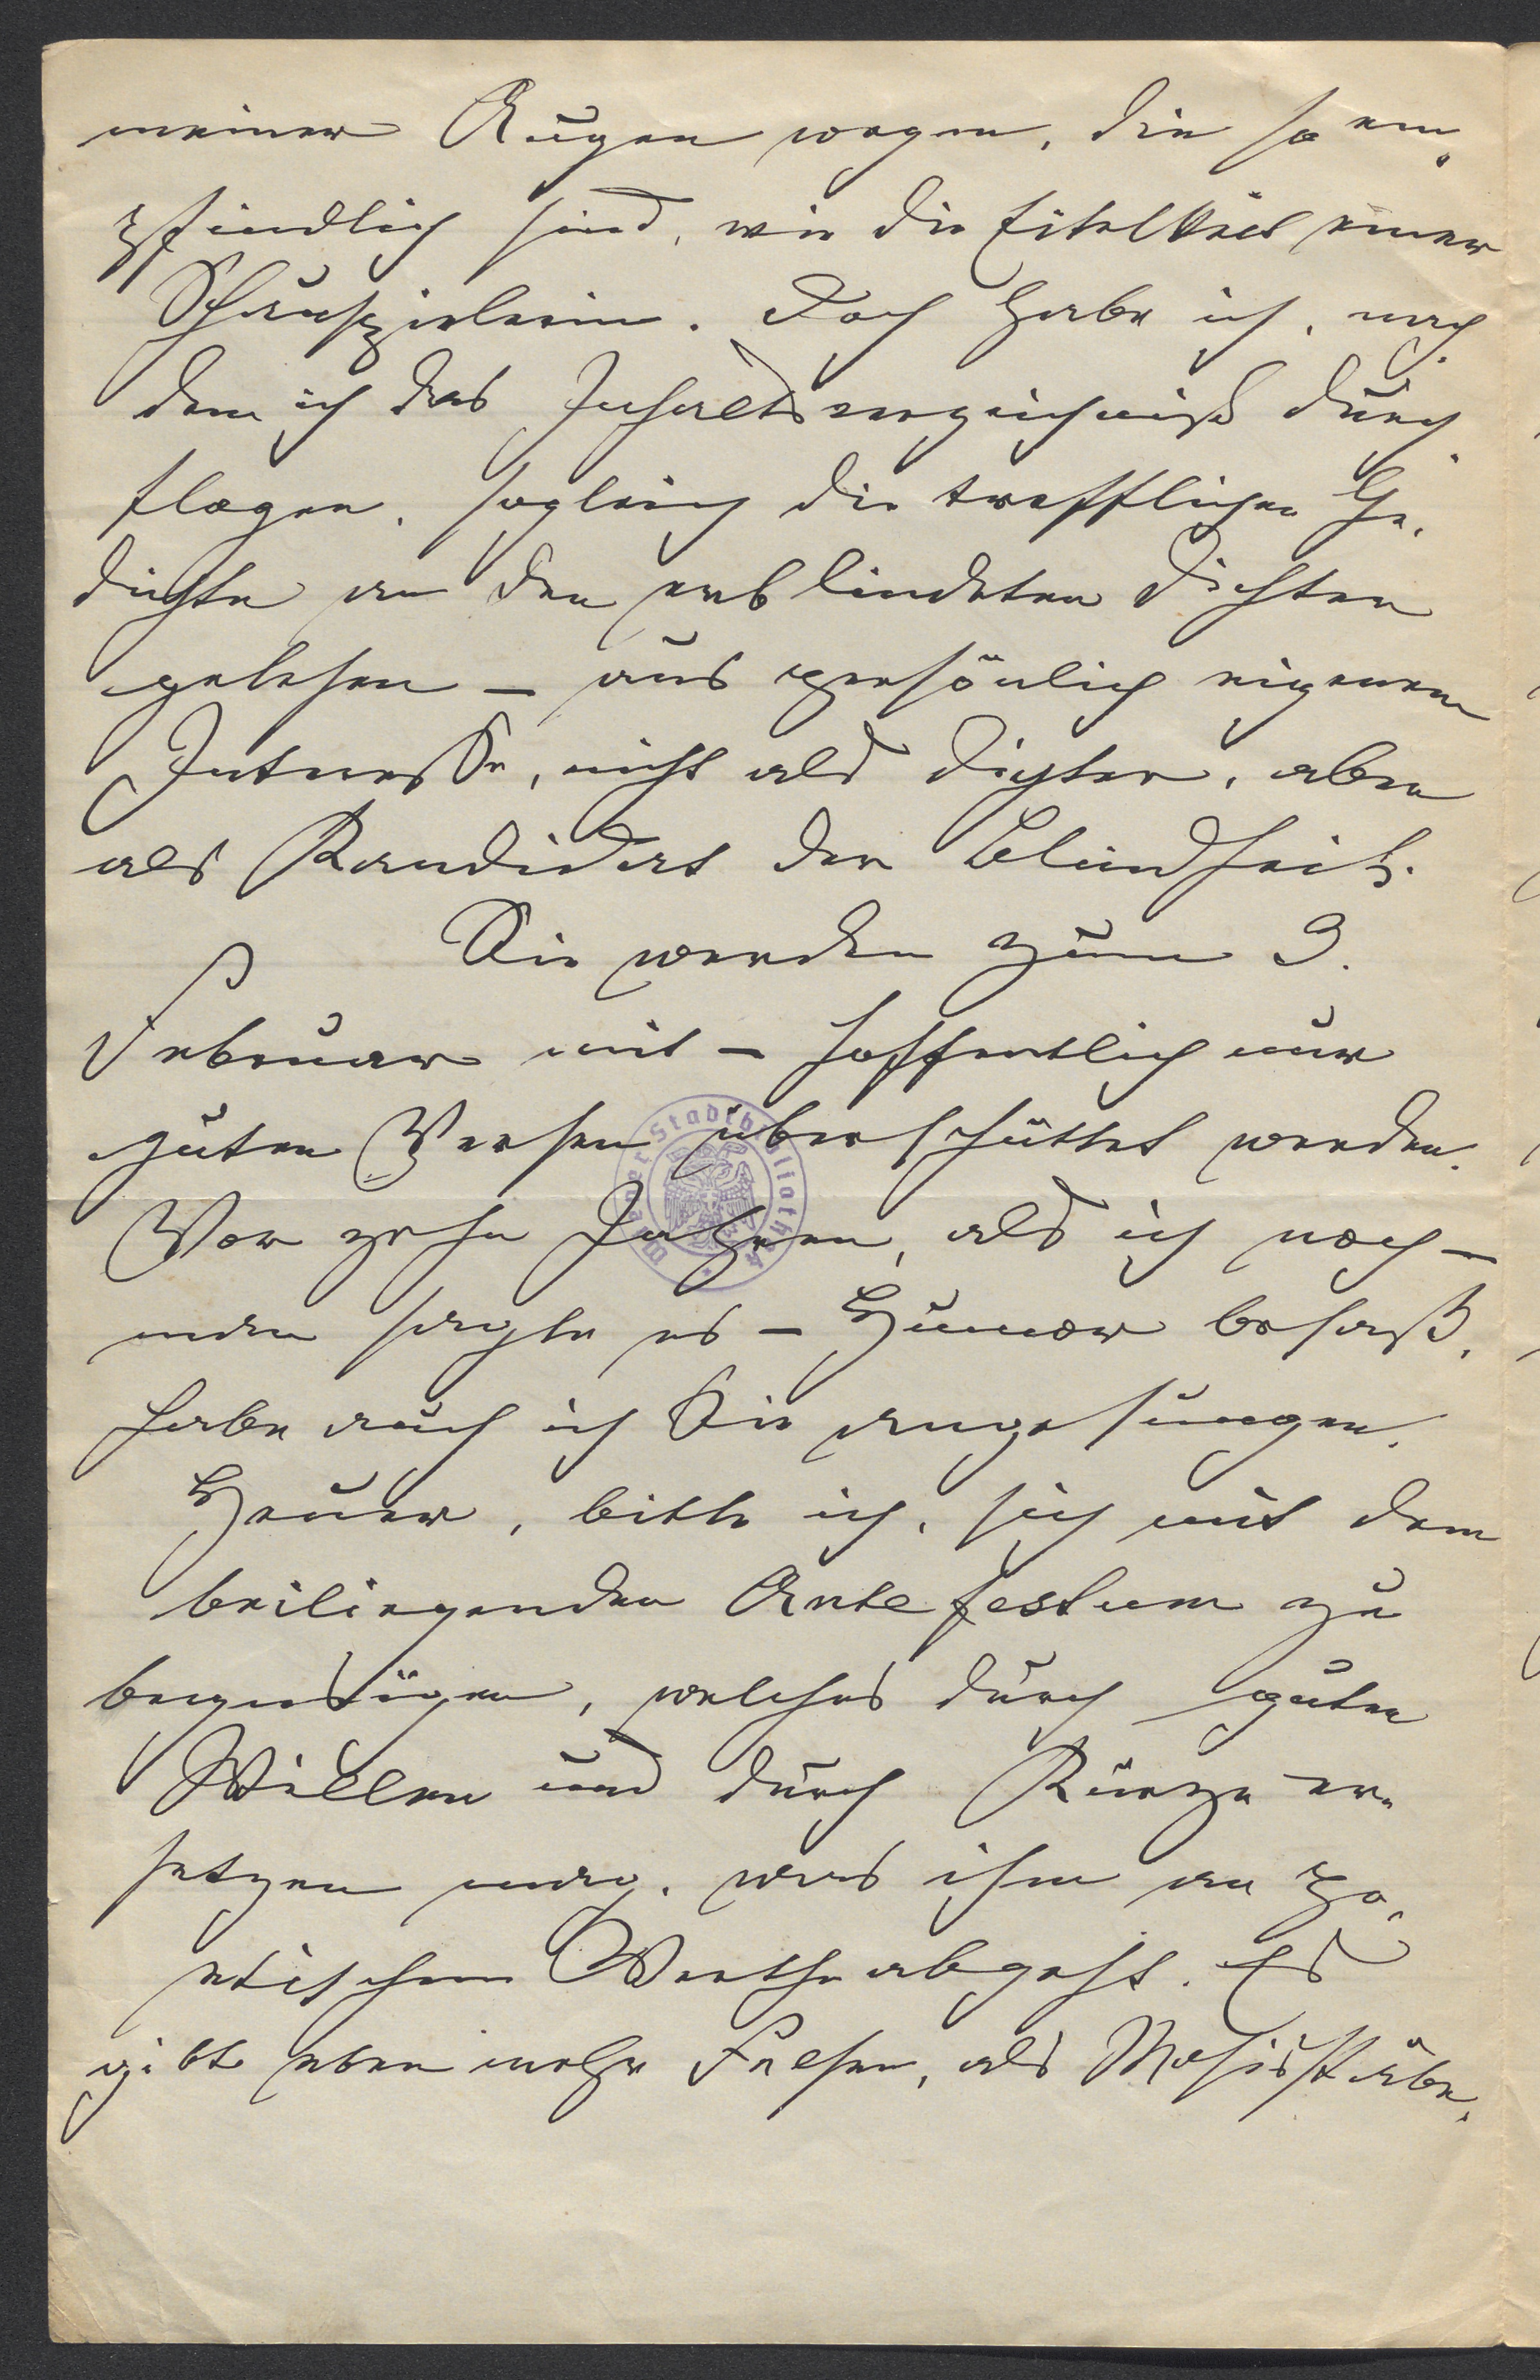 meiner Augen wegen, die so em-
pfindlich sind, wie die Eitelkeit einer
Schauspielerin. Doch habe ich, nach-
dem ich das Inhaltsverzeichniß durch-
flogen, sogleich die trefflichen Ge-
dichte an den erblindeten Dichter
gelesen – aus persönlich eigenem
Interesse, nicht als Dichter, aber
als Kandidat der Blindheit.
Sie werden zum 3.
Februar mit – hoffentlich nur
guten Versen überschüttet werden.
Vor zehn Jahren, als ich noch –
man sagte es – Humor besaß,
habe auch ich Sie angesungen.
Heuer, bitte ich, sich mit dem
beiliegenden Ante festum zu
begnügen, welches durch guten
Willen und durch Kürze er-
setzen mag, was ihm an po-
etischem Werthe abgeht. Es
gibt eben mehr Felsen, als Mosisstäbe.
Wiener Stadtbibliothek